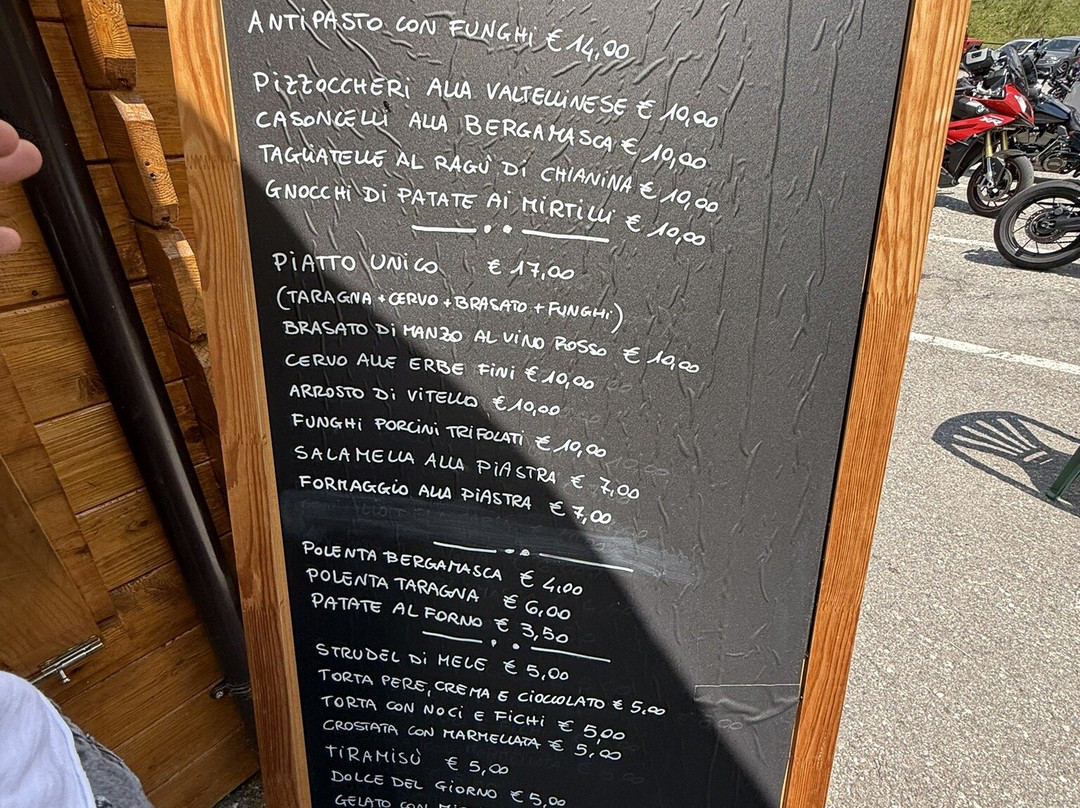 ANTIPASTO CON FUNGHI € 14,00
PIZZOCCHERI ALLA VALTELLINESE € 10,00
CASONCELLI ALLA BERGAMASCA € 10,00
TAGLIATELLE AL RAGÙ DI CHIANINA € 10,00
GNOCCHI DI PATATE AI MIRTILLI € 10,00
PIATTO UNICO € 17,00
(TARAGNA + CERVO + BRASATO + FUNGHI)
BRASATO DI MANZO AL VINO ROSSO € 10,00
CERVO ALLE ERBE FINI € 10,00
ARROSTO DI VITELLO € 10,00
FUNGHI PORCINI TRIFOLATI € 10,00
SALAMELLA ALLA PIASTRA € 7,00
FORMAGGIO ALLA PIASTRA € 7,00
POLENTA BERGAMASCA € 4,00
POLENTA TARAGNA € 6,00
PATATE AL FORNO € 3,50
STRUDEL DI MELE € 5,00
TORTA PERE, CREMA E CIOCCOLATO € 5,00
TORTA CON NOCI E FICHI € 5,00
CROSTATA CON MARMELLATA € 5,00
TIRAMISÙ € 5,00
DOLCE DEL GIORNO € 5,00
GELATO CON